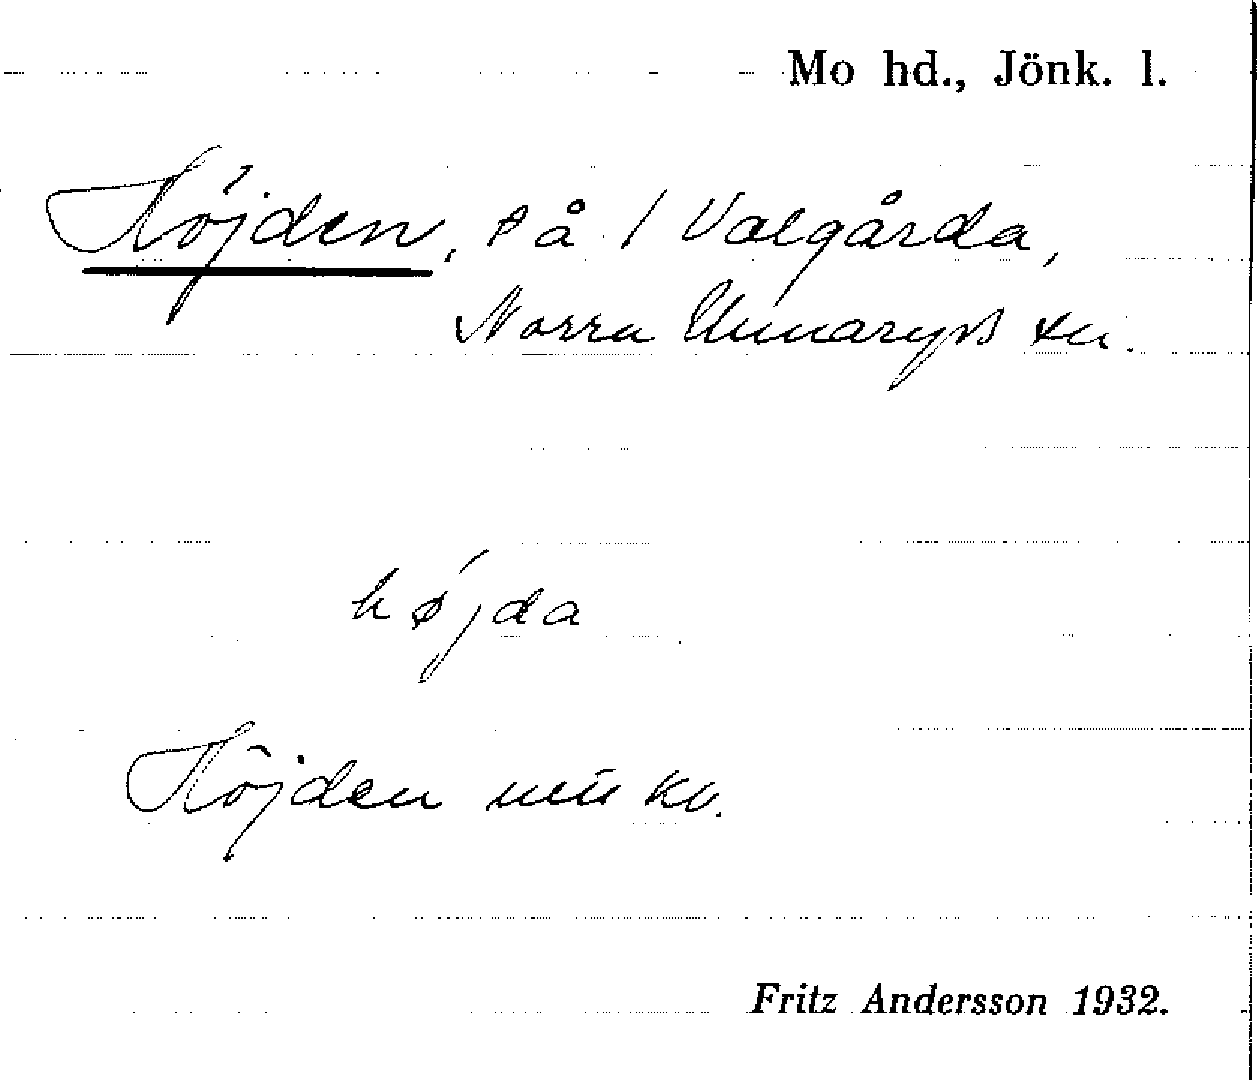 Mo hd., Jönk. l.
Höjden, på 1 Valgårda,
Norra Unnaryds sn.
högda
Höjden mtr kv.
Fritz Andersson 1932.